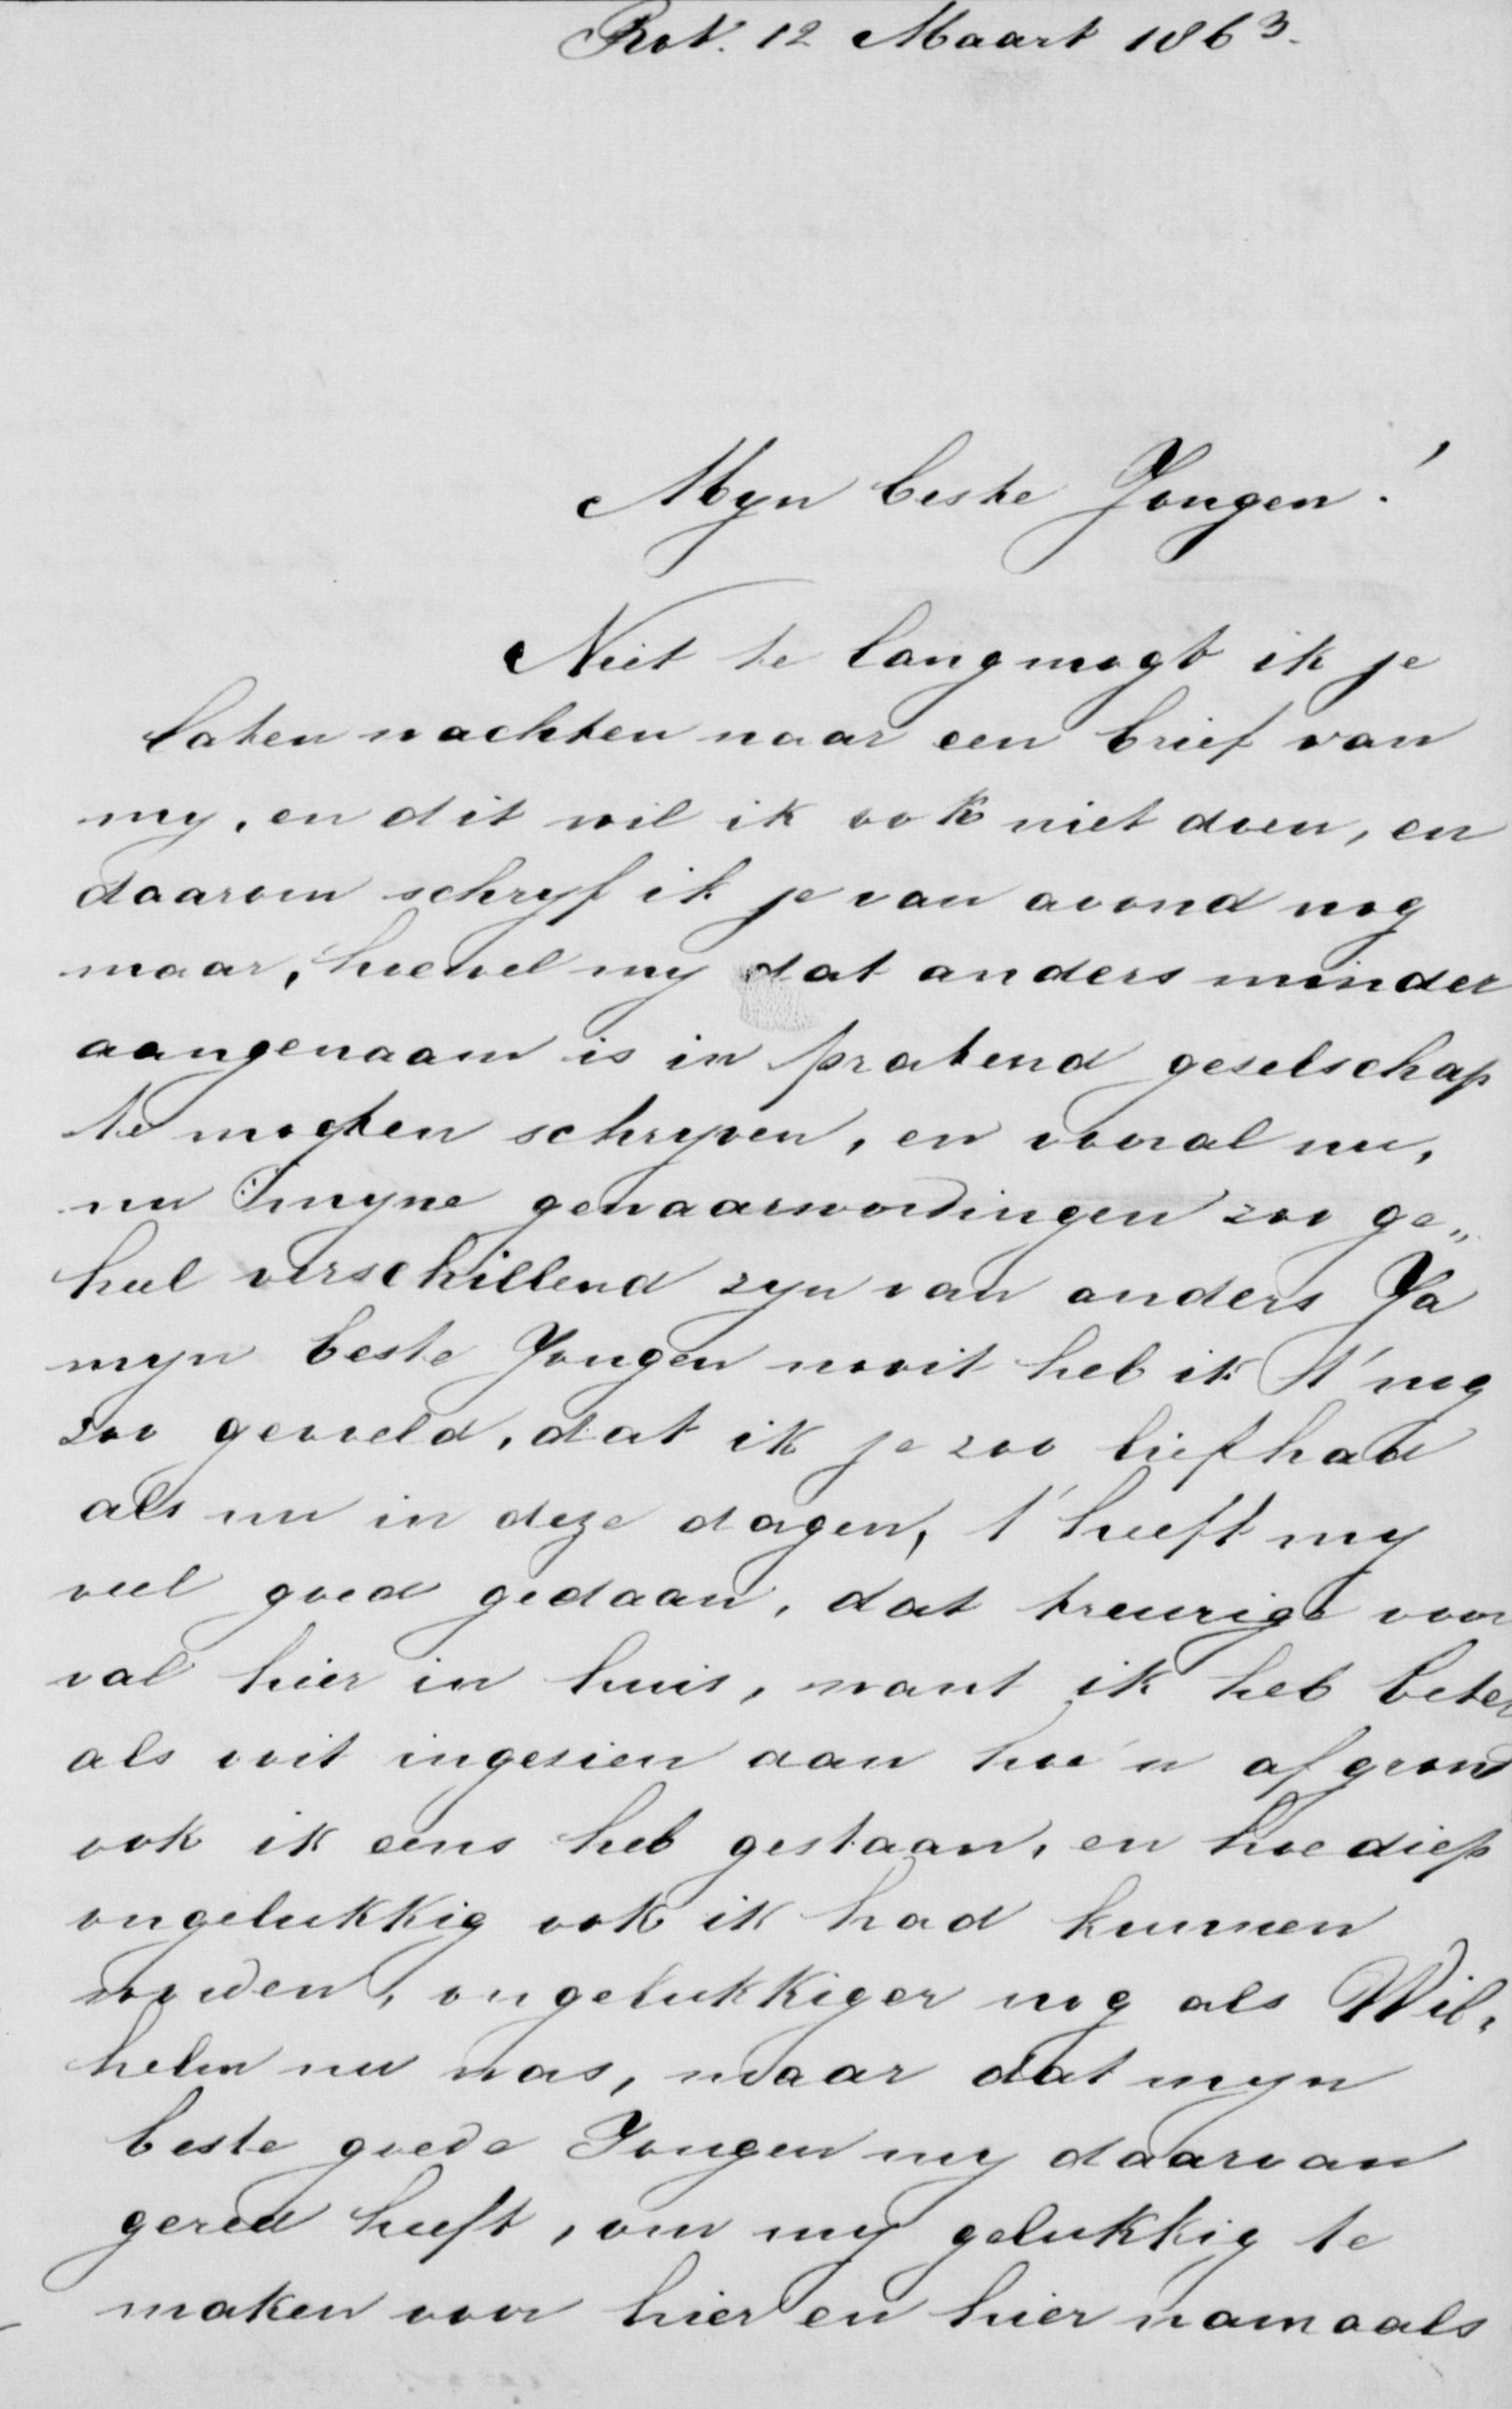 Rot. 12 Maart 1863.
Myn beste Jongen!
Niet te lang mogt ik je
laten wachten naar een brief van
my, en dit wil ik ook niet doen, en
daarom schryf ik je van avond nog
maar, hoewel my dat anders minder
aangenaam is in pratend geselschap
te mogten schryven, en vooral nu,
nu myne gewaarwordingen zoo ge„
heel verschillend zyn van anders Ja
myn beste Jongen nooit heb ik t' nog
zoo gevoeld, dat ik je zoo liefhad
als nu in deze dagen, t' heeft my
veel goed gedaan, dat treurige voor
val hier in huis, want ik heb beter
als ooit ingesien aan hoe'n afgrond
ook ik eens heb gestaan, en hoe diep
ongelukkig ook ik had kunnen
worden, ongelukkiger nog als Wil„
helm nu was, maar dat myn
beste goede Jongen my daarvan
gered heeft, om my gelukkig te
maken voor hier en hier namaals